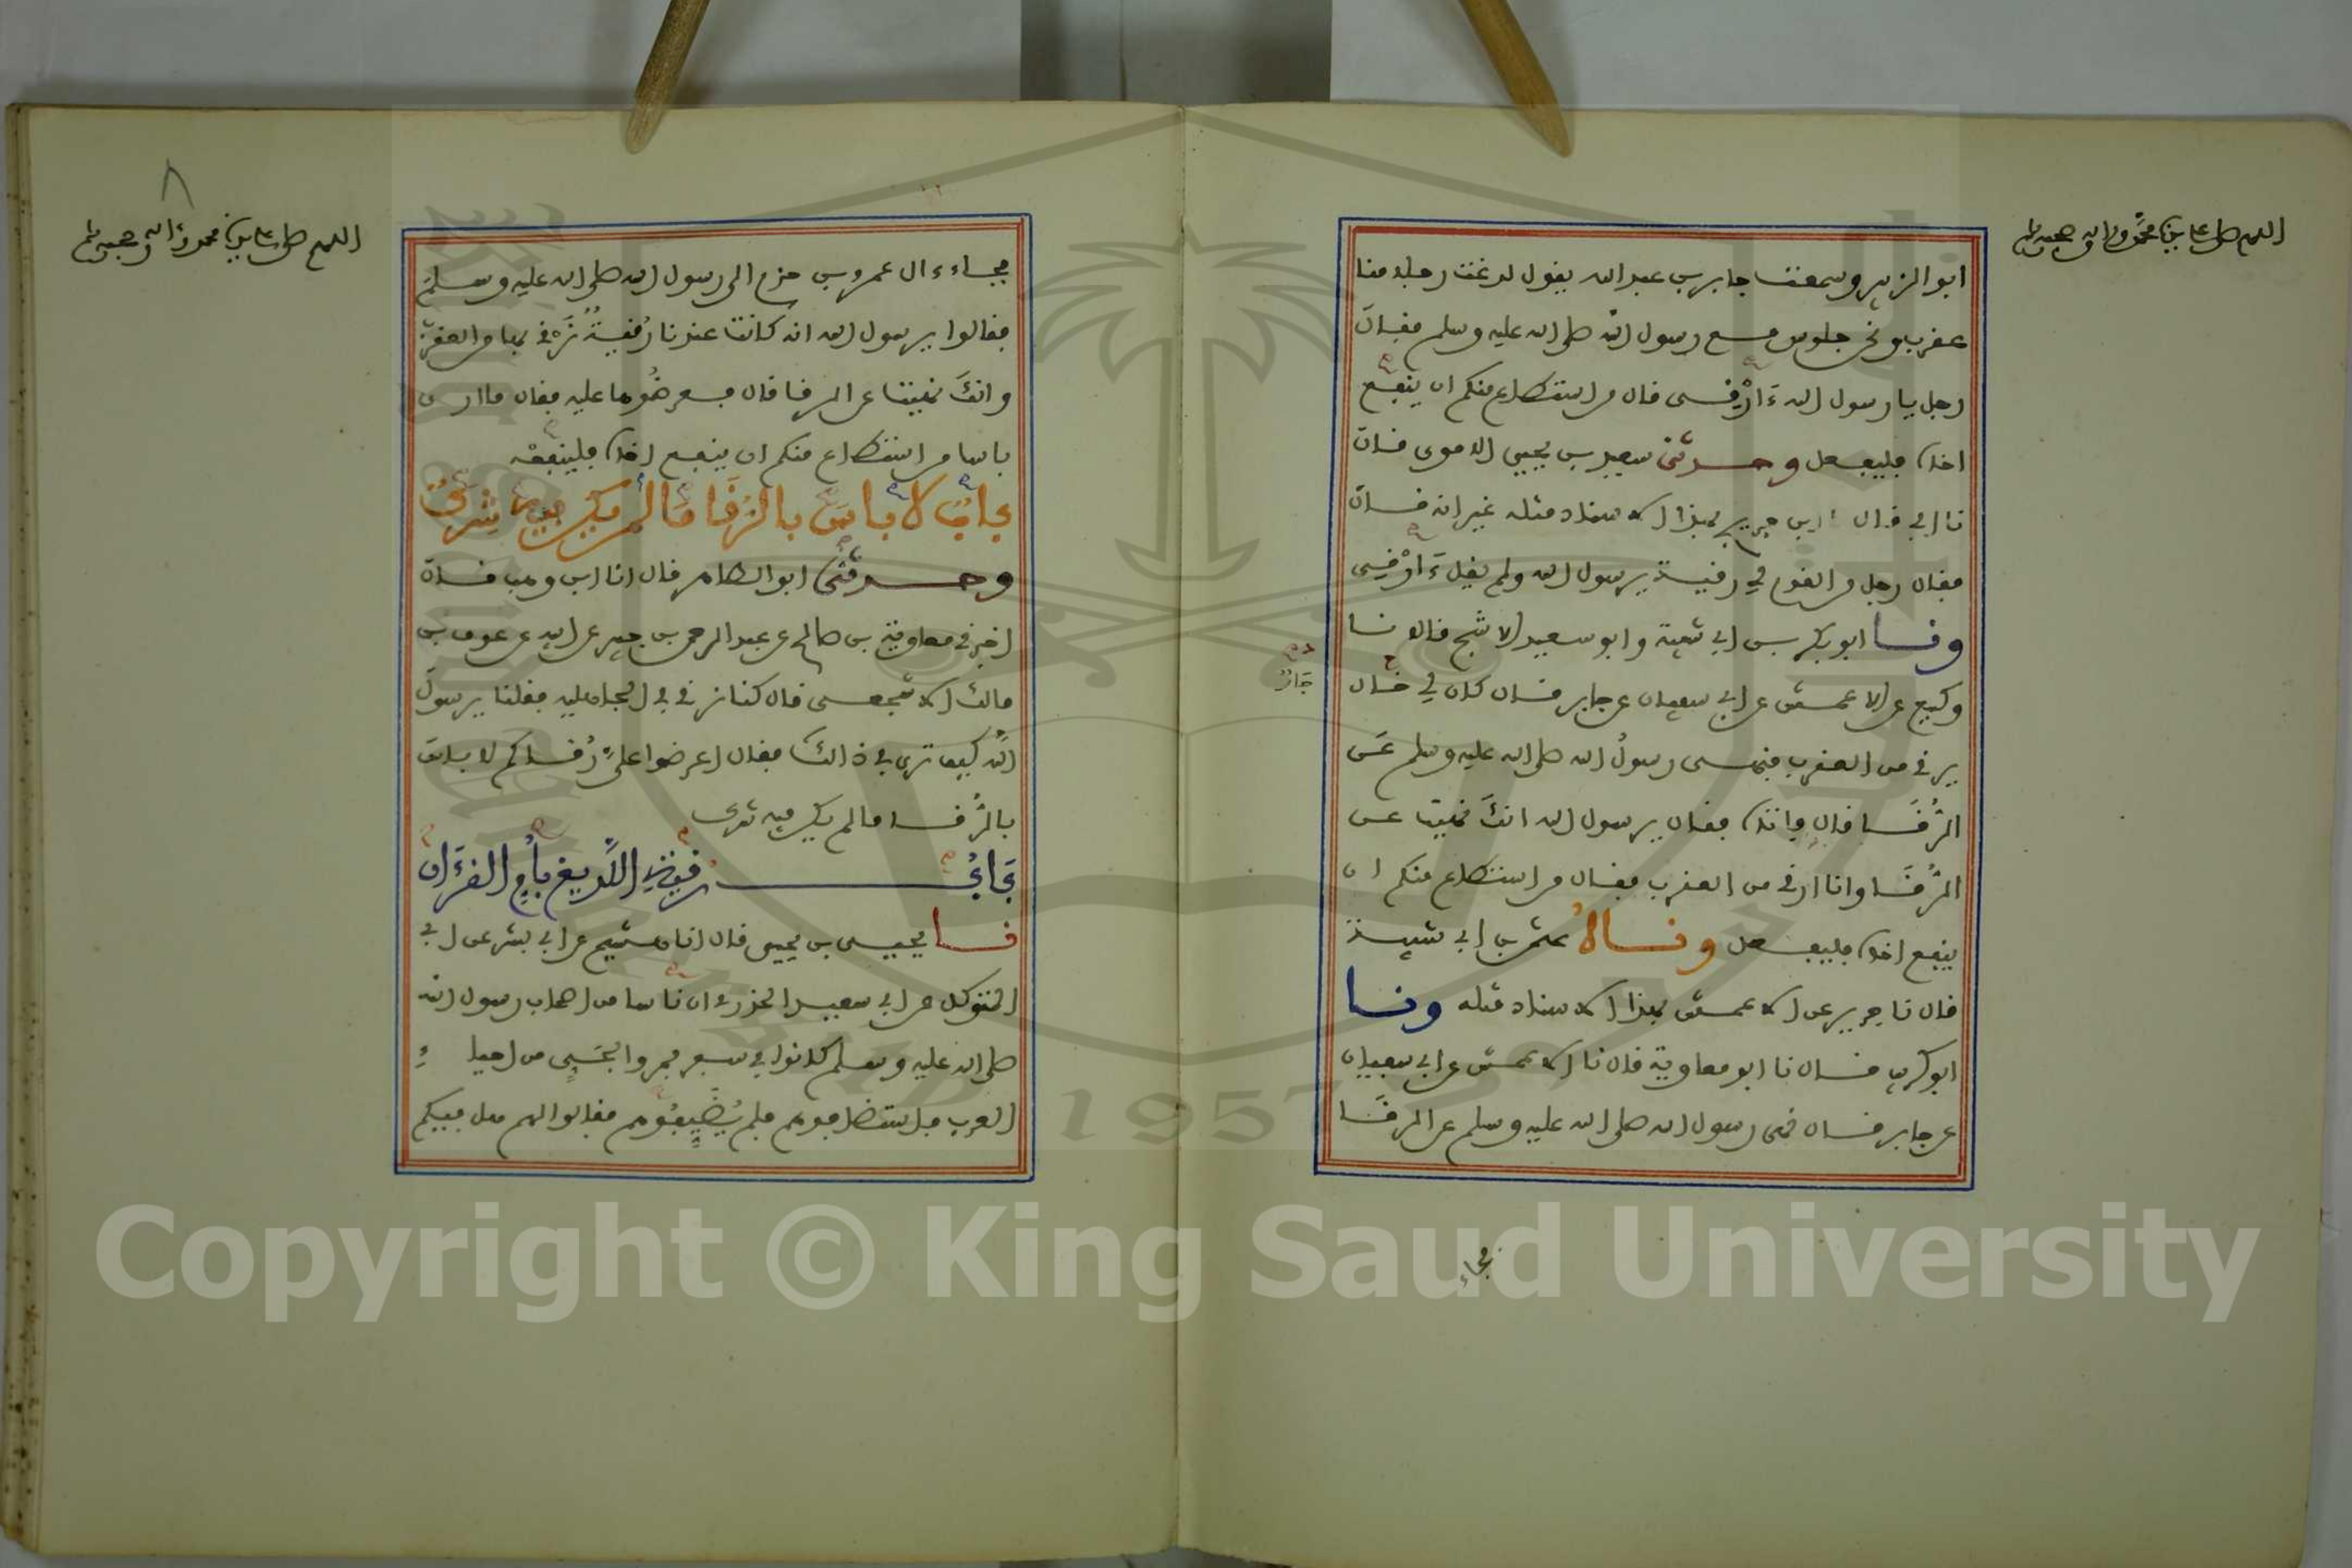 اللهم صل على سيدنا محمد وآله وصحبه وسلم
ابو الزبير وسمعت جابر بن عبد الله يقول لدغت رجلا منا
عقرب ونحن جلوس مع رسول الله صلى الله عليه وسلم فقال
رجل يا رسول الله ءَارْفِى قال من استطاع منكم ان ينفع
اخاه فليفعل وحدثنى سعيد بن يحيى الاموى قال
نا ابي قال نا ابن جريج بهذا الاسناد مثله غير انه قال
فقال رجل من القوم في رقيه يرسول الله ولم يقل ءَارْفِى
ونا ابو بكر بن ابي شيبة وابو سعيد الاشج قالا نا
وكيع عن الاعمش عن ابي سفيان عن جابر قال كان لي خال
يرقي من العقرب فنهى رسول الله صلى الله عليه وسلم عن
الرُّقَا قال فاتاه فقال يرسول الله انك نهيت عن
الرُّقَا وانا ارقي من العقرب فقال من استطاع منكم ان
ينفع اخاه فليفعل وناهُ عثمن بن ابي شيبة
قال نا جرير عن الاعمش بهذا الاسناد مثله ونا
ابو كريب قال نا ابو معاوية قال نا الاعمش عن ابي سفيان
عن جابر قال نهى رسول الله صلى الله عليه وسلم عن الرقَا
فجاء
اللهم صل على سيدنا محمد وءاله وصحبه وسلم
٨
فجاء ءال عمرو بن حزم الى رسول الله صلى الله عليه وسلم
فقالوا يرسول الله انه كانت عندنا رُقيةٌ نَرْقي بها من العقرب
وانكَ نهيت عن الرقا قال فعرضُوها عليه فقال ما ارى
باسا من استطاع منكم ان ينفع اخاه فلينفعْه
بابٌ لا باسَ بالرُّقَا مَا لم يكن فيه شركٌ
وحدثنى ابو الطاهر قال انا ابن وهب قال
اخبرني معاوية بن صالح عن عبد الرحمن بن جبير عن ابيه عن عوف بن
مالك الاشجعى قال كنا نرقي في الجاهلية فقلنا يرسول
الله كيف ترى في ذالك فقال اعرضوا علىَّ رُقاكم لا باس
بالرُّقا ما لم يكن فيه شرك
بَابُ رقيةِ اللَّديغ بأُمِّ القرءَان
نا يحيى بن يحيى قال انا هشيم عن ابي بشر عن ابي
المتوكل عن ابي سعيد الخدرى ان ناسا من اصحاب رسول الله
صلى الله عليه وسلم كانوا في سفر فمروا بحَيٍّ من احياءِ
العرب فاستضافوهم فلم يُضَيِّفُوهم فقالوا لهم هل فيكم